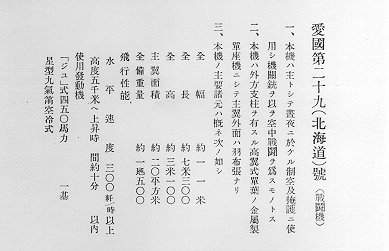 愛國第二十九(北海道)號(戰鬪機)
一、本機ハ主トシテ晝夜ニ於ケル制空及掩護ニ使
用シ機關銃ヲ以テ空中戰鬪ヲ爲スモノトス
二、本機ハ外方支柱ヲ有スル高翼式單葉ノ金屬製
單座機ニシテ主翼外面ハ羽布張ナリ
三、本機ノ主要諸元ハ槪ネ次ノ如シ
全幅 約一一米
全長 約七米三〇〇
全高 約三米一〇〇
主翼面積 約二〇平方米
全備重量 約一瓲五〇〇
飛行性能
水平速度 三〇〇粁/時以上
高度五千米ヘ上昇時間約十分以内
使用發動機
「ジュ」式四五〇馬力 一基
星型九氣筩空冷式